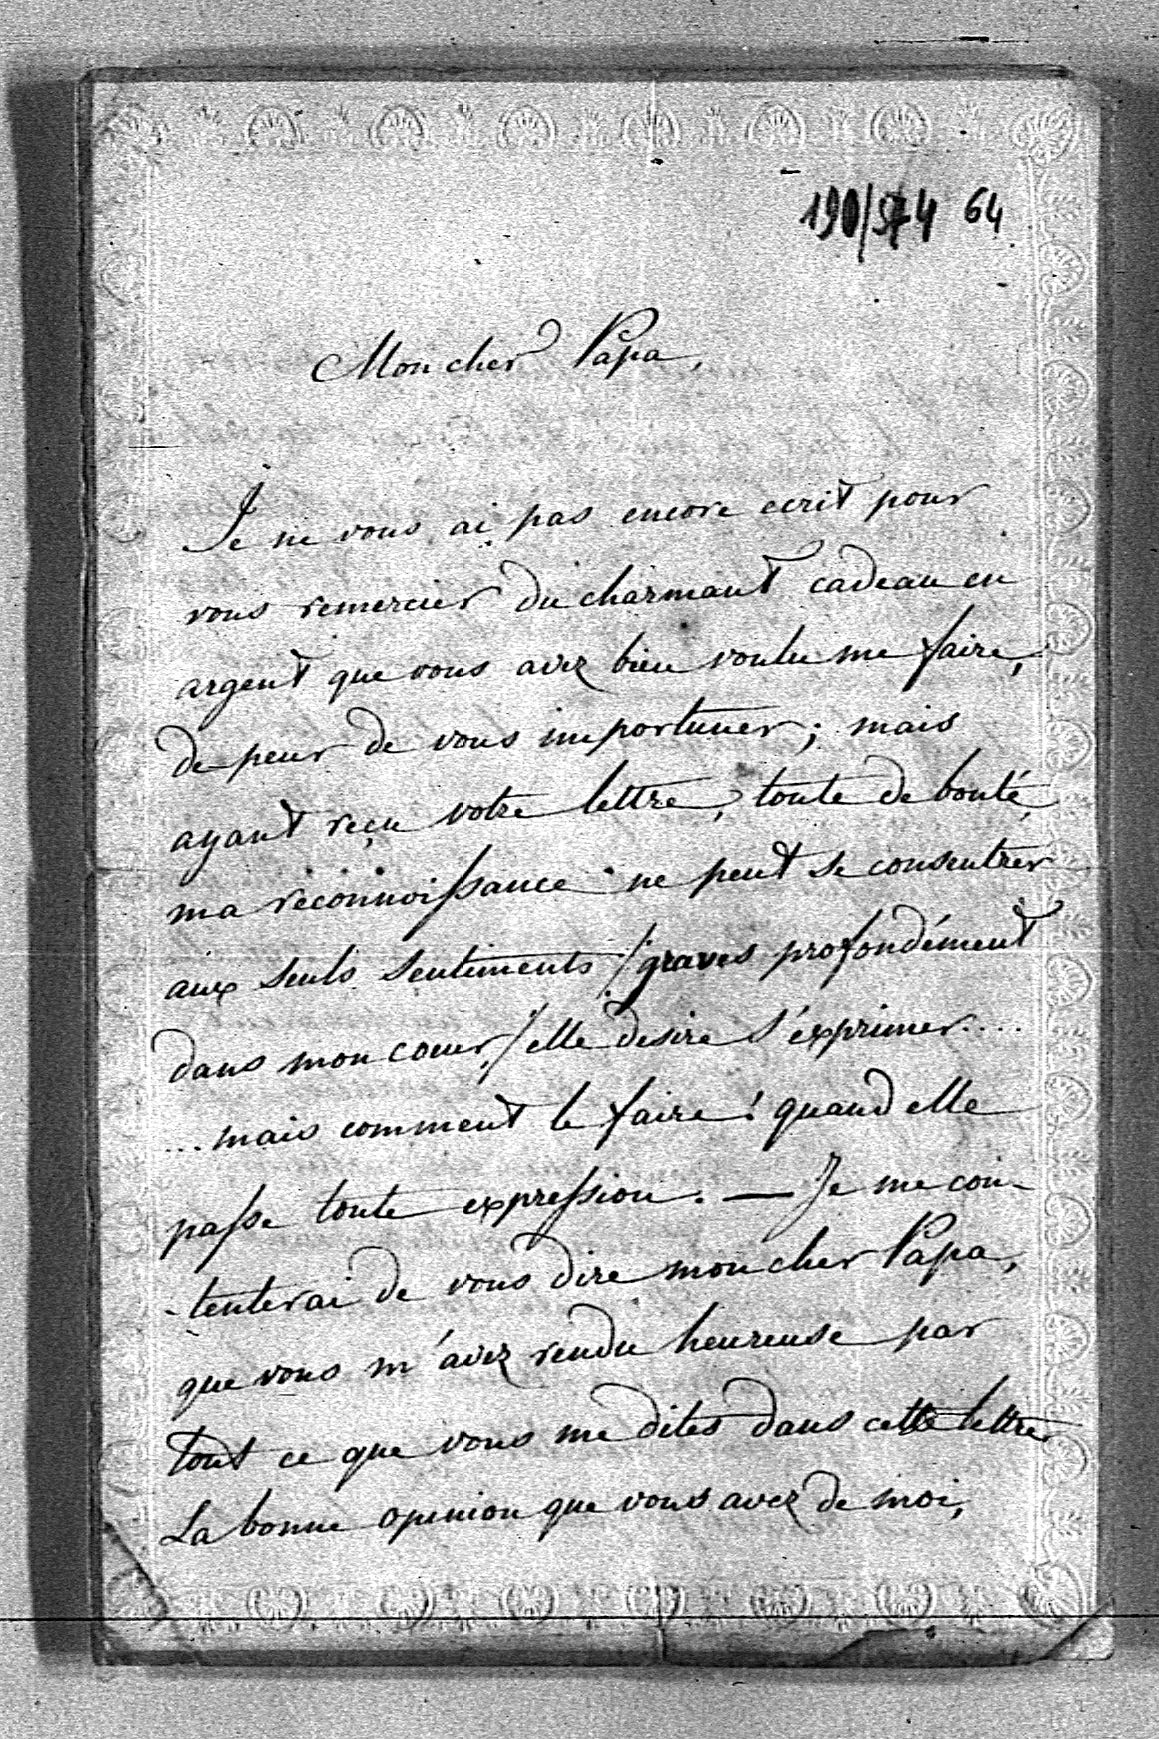 190/574 64
Mon cher Papa,
Je ne vous ai pas encore ecrit pour
vous remercier du charmant cadeau en
argent que vous avez bien voulu me faire,
de peur de vous importuner; mais
ayant reçu votre lettre, toute de bonté,
ma réconnoissance ne peut se consentrer
aux seuls sentiments /graves profondément
dans mon cœur,/ elle desire s'éxprimer....
...mais comment le faire! quand elle
passe toute expression. — Je me con-
-tenterai de vous dire mon cher Papa,
que vous m'avez rendu heureuse par
tout ce que vous me dites dans cette lettre
La bonne opinion que vous avez de moi,